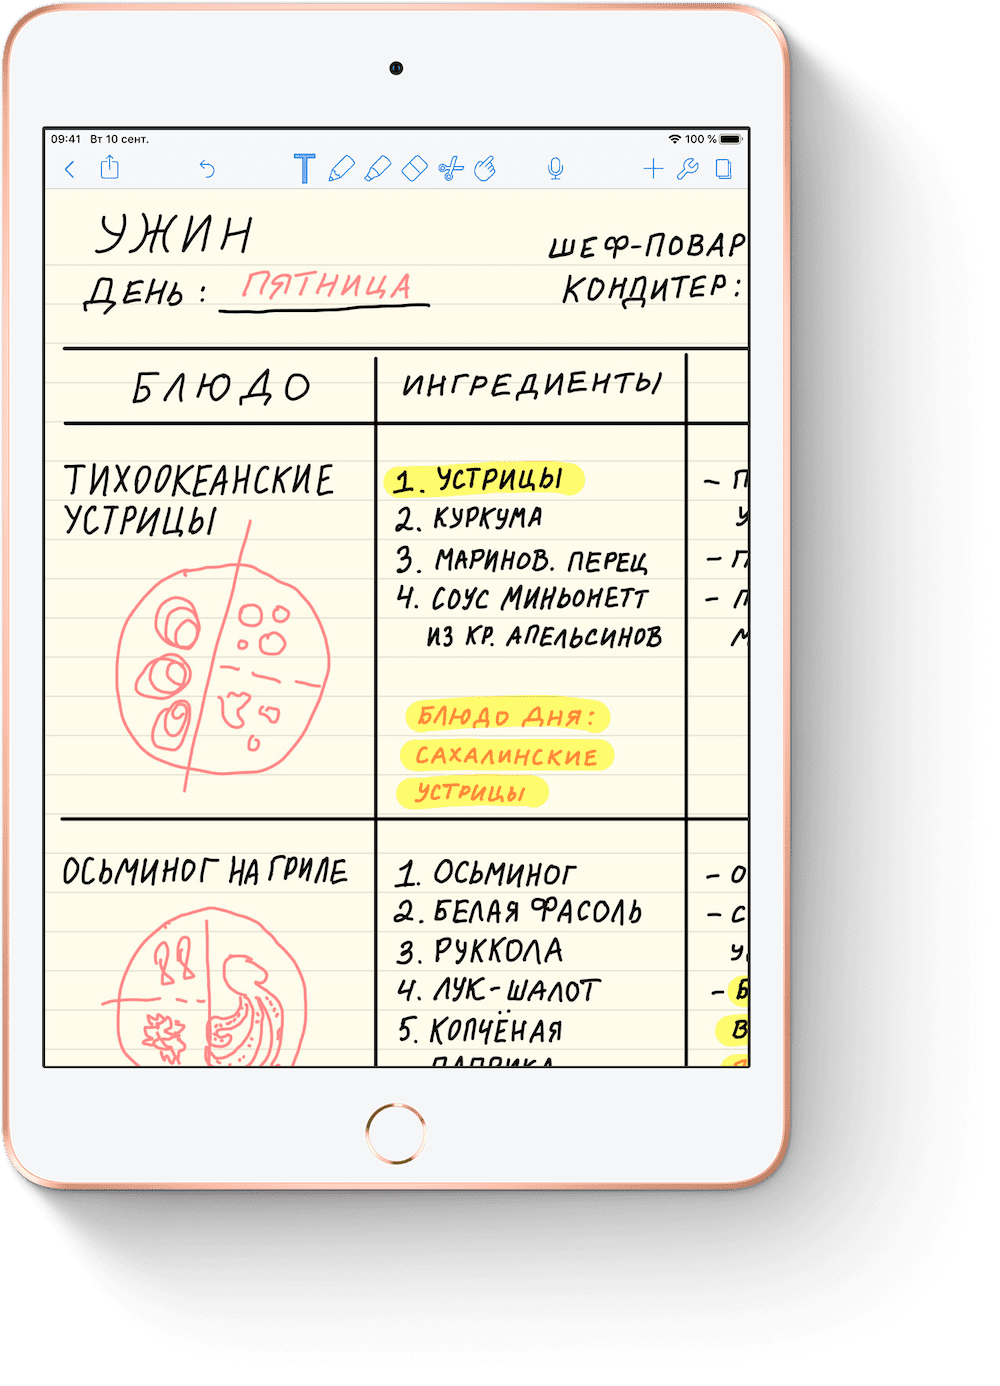 09:41 Вт 10 сент. 100 %
УЖИН
ДЕНЬ: ПЯТНИЦА
ШЕФ-ПОВАР
КОНДИТЕР:
БЛЮДО
ИНГРЕДИЕНТЫ
ТИХООКЕАНСКИЕ
УСТРИЦЫ
1. УСТРИЦЫ
2. КУРКУМА
3. МАРИНОВ. ПЕРЕЦ
4. СОУС МИНЬОНЕТТ
ИЗ КР. АПЕЛЬСИНОВ
БЛЮДО ДНЯ:
САХАЛИНСКИЕ
УСТРИЦЫ
ОСЬМИНОГ НА ГРИЛЕ
1. ОСЬМИНОГ
2. БЕЛАЯ ФАСОЛЬ
3. РУККОЛА
4. ЛУК-ШАЛОТ
5. КОПЧЁНАЯ
ПАПРИКА